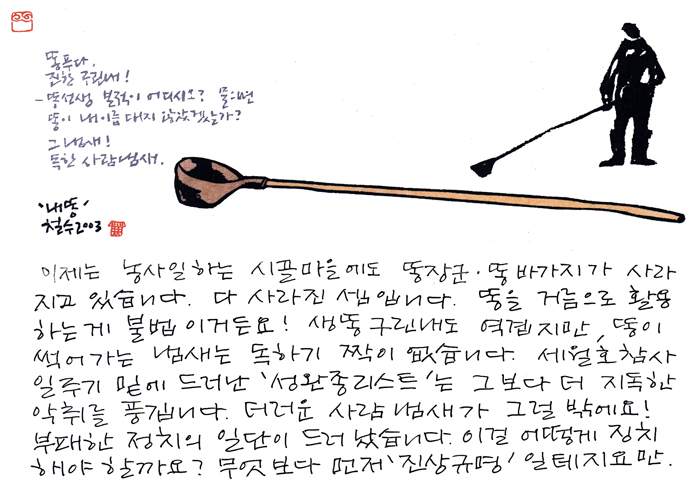 똥푸다.
진한 구린내!
- 똥선생 본적이 어디시오? 물으면
똥이 내 이름 대지 않았겠는가?
그 냄새!
독한 사람냄새.
'내똥'
철수 2003
이제는 농사일하는 시골마을에도 똥장군·똥바가지가 사라
지고 있습니다. 다 사라진 셈입니다. 똥을 거름으로 활용
하는게 불법이거든요! 생똥구린내도 역겹지만, 똥이
썩어가는 냄새는 독하기 짝이 없습니다. 세월호참사
일주기 밑에 드러난 '성완종리스트'는 그보다 더 지독한
악취를 풍깁니다. 더러운 사람냄새가 그럴 밖에요!
부패한 정치의 일단이 드러났습니다. 이걸 어떻게 정치
해야 할까요? 무엇보다 먼저 '진상규명' 일테지요만.